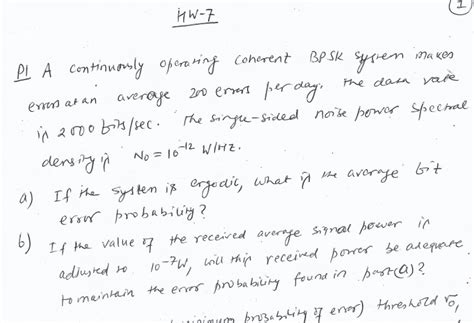 HW-7
1
P1 A continuously operating coherent BPSK system makes
errors at an average 200 errors per day. The data rate
is 2000 bits/sec. The single-sided noise power spectral
density is N₀ = 10⁻¹² W/Hz.
a) If the system is ergodic, what is the average bit
error probability?
b) If the value of the received average signal power is
adjusted to 10⁻⁷W, will this received power be adequate
to maintain the error probability found in part(a)?
probability of error) threshold r₀,